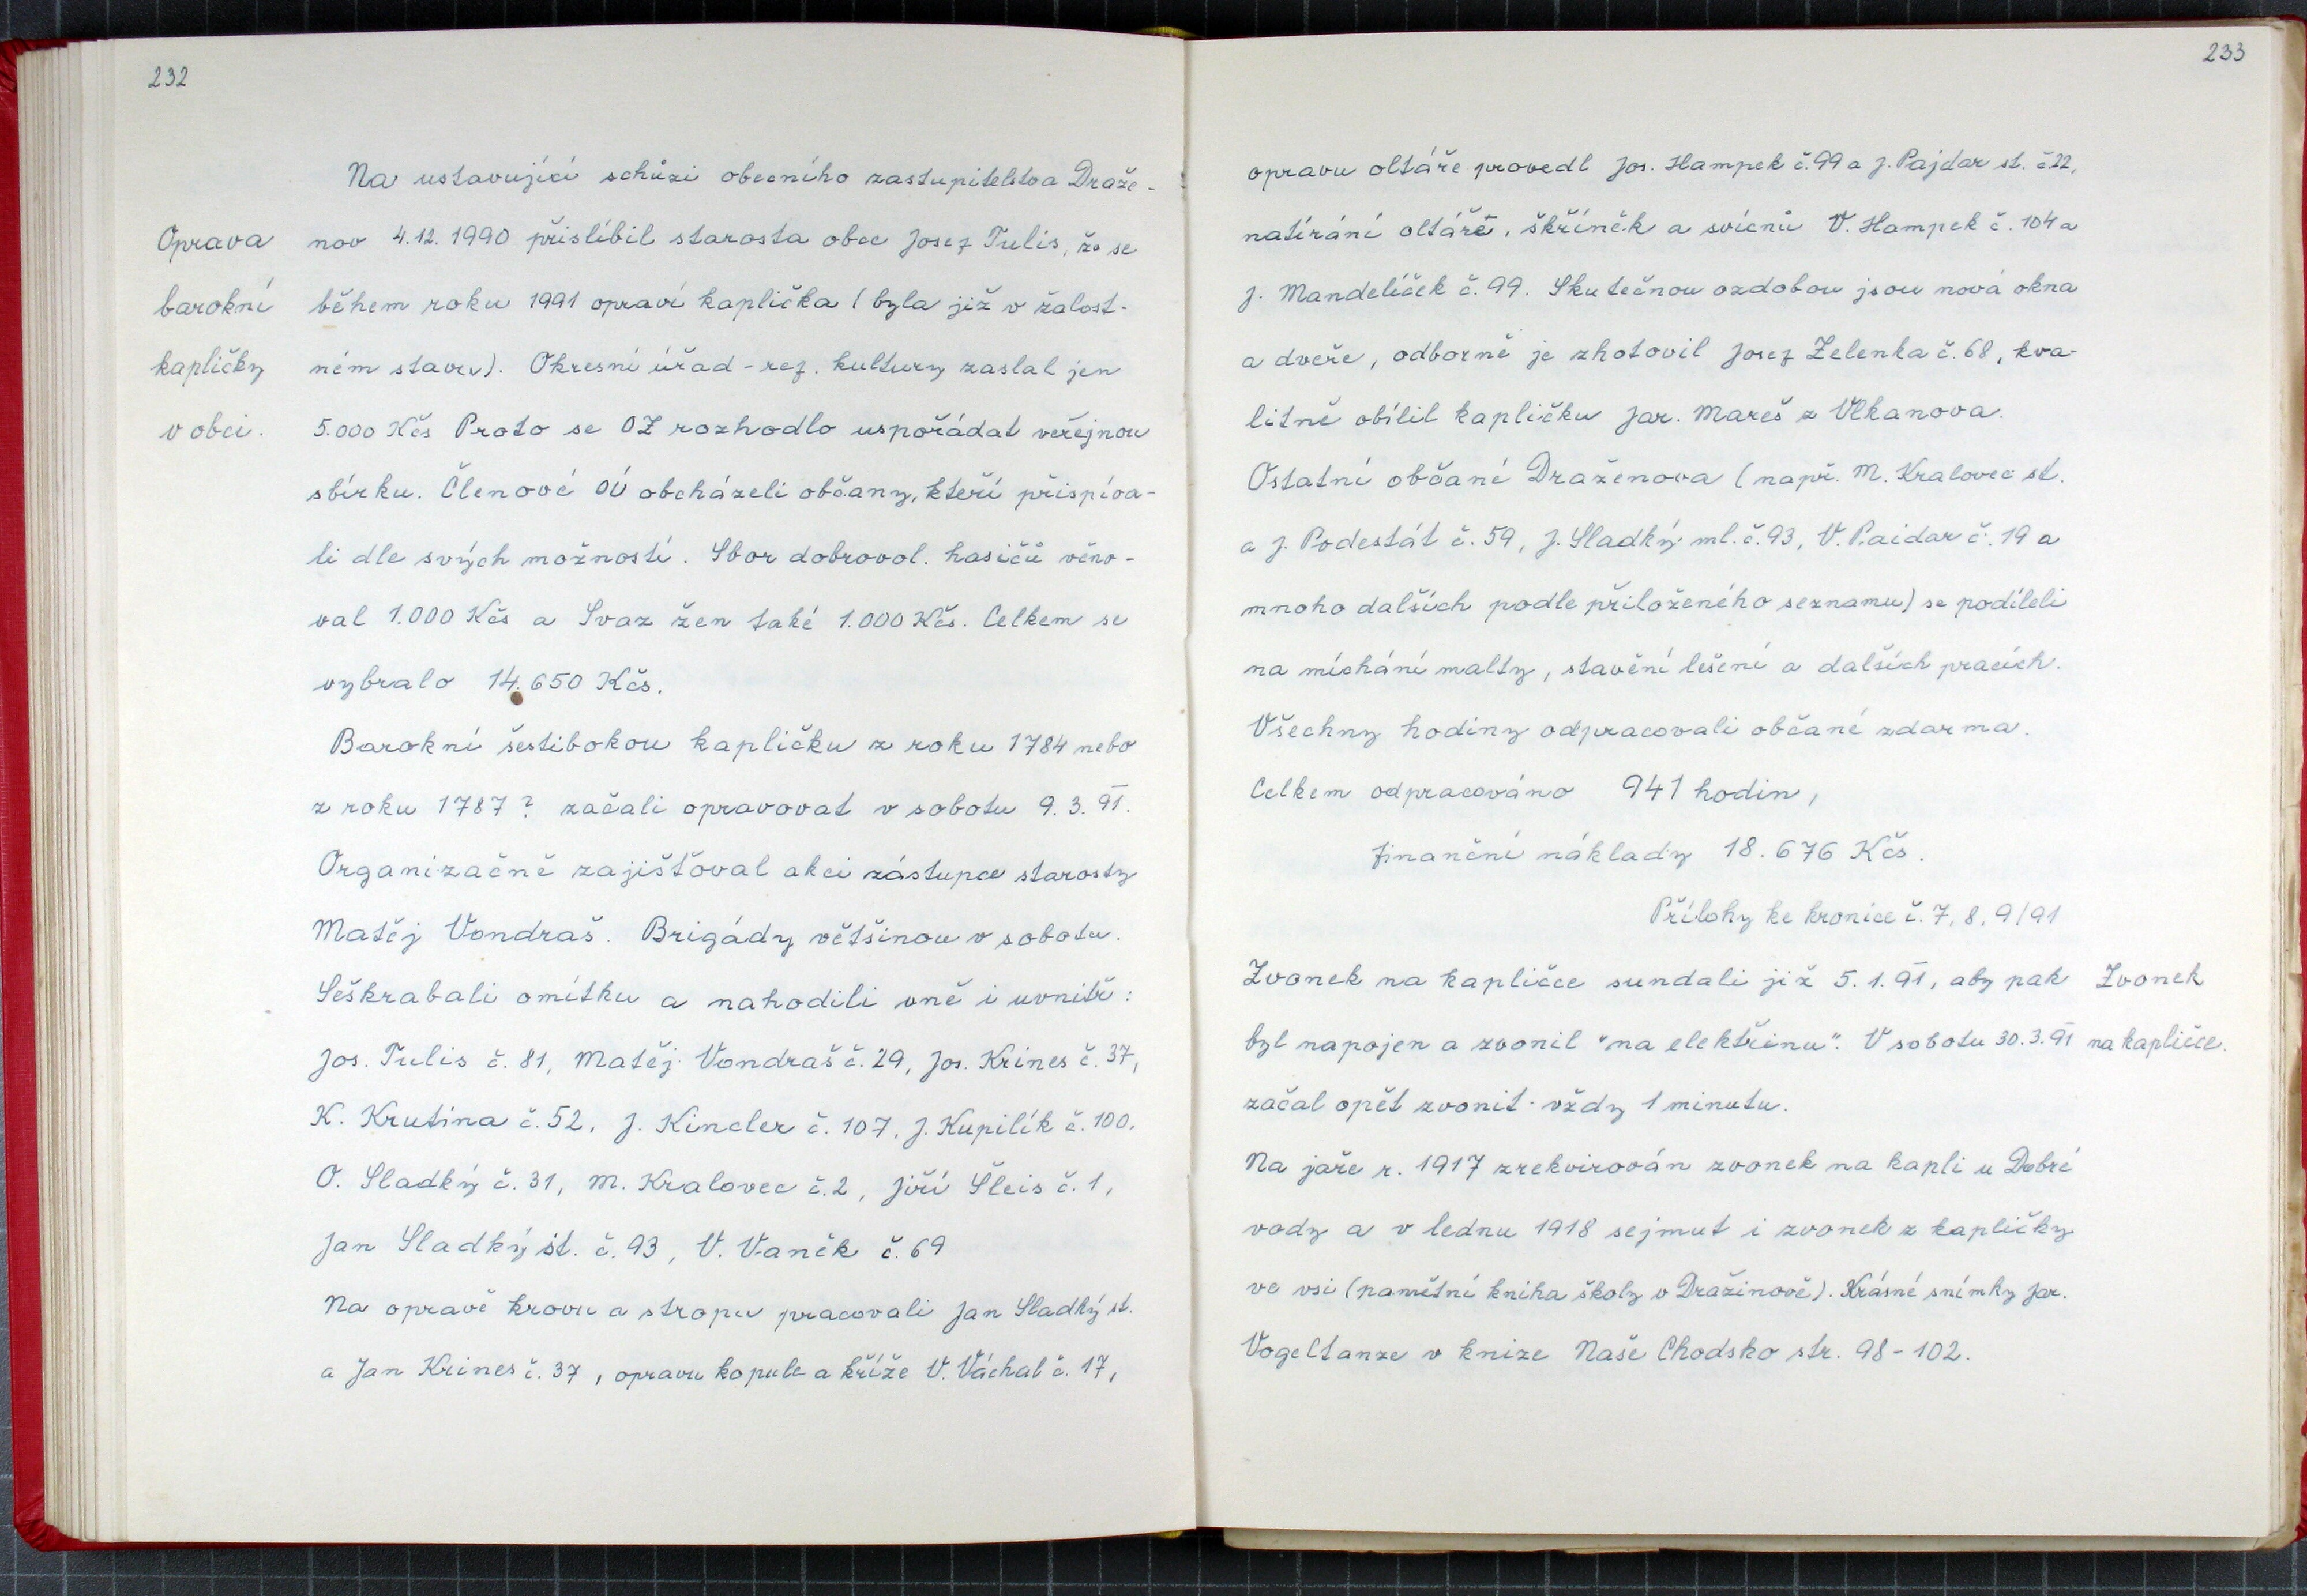 232
Na ustavující schůzi obecního zastupitelstva Draže-
Oprava
nov 4.12. 1990 přislíbil starosta obce Josef Tulis, že se
barokní
během roku 1991 opraví kaplička (byla již v žalost-
kapličky
ném stavu). Okresní úřad - ref. kultury zaslal jen
v obci.
5.000 Kčs Proto se OZ rozhodlo uspořádat veřejnou
sbírku. Členové OÚ obcházeli občany, kteří přispíva-
li dle svých možností. Sbor dobrovol. hasičů věno-
val 1.000 Kčs a Svaz žen také 1.000 Kčs. Celkem se
vybralo 14.650 Kčs.
Barokní šestibokou kapličku z roku 1784 nebo
z roku 1787? začali opravovat v sobotu 9.3.91.
Organizačně zajišťoval akci zástupce starosty
Matěj Vondraš. Brigády většinou v sobotu.
Seškrabali omítku a nahodili vně i uvnitř:
Jos. Tulis č. 81, Matěj Vondraš č. 29, Jos. Krines č. 37,
K. Krutina č. 52, J. Kincler č. 107, J. Kupilík č. 100,
O. Sladký č. 31, M. Kralovec č. 2, Jiří Šleis č. 1,
Jan Sladký st. č. 93, V. Vaněk č. 69
Na opravě krovu a stropu pracovali Jan Sladký st.
a Jan Krines č. 37, opravu kopule a kříže V. Váchal č. 17,
233
opravu oltáře provedl Jos. Hampek č. 99 a J. Pajdar st. č. 22,
natírání oltáře, skříněk a svícnů V. Hampek č. 104 a
J. Mandelíček č. 99. Skutečnou ozdobou jsou nová okna
a dveře, odborně je zhotovil Josef Zelenka č. 68, kva-
litně obílil kapličku Jar. Mareš z Vlkanova.
Ostatní občané Draženova (např. M. Kralovec st.
a J. Podestát č. 59, J. Sladký ml. č. 93, V. Paidar č. 19 a
mnoho dalších podle přiloženého seznamu) se podíleli
na míchání malty, stavění lešení a dalších pracích.
Všechny hodiny odpracovali občané zdarma.
Celkem odpracováno 941 hodin,
finanční náklady 18.676 Kčs.
Přílohy ke kronice č. 7, 8, 9/91
Zvonek na kapličce sundali již 5.1.91, aby pak
Zvonek
byl napojen a zvonil "na elektřinu". V sobotu 30.3.91
na kapličce.
začal opět zvonit - vždy 1 minutu.
Na jaře r. 1917 zrekvirován zvonek na kapli u Dobré
vody a v lednu 1918 sejmut i zvonek z kapličky
ve vsi (pamětní kniha školy v Dražinově). Krásné snímky Jar.
Vogeltanze v knize Naše Chodsko str. 98-102.